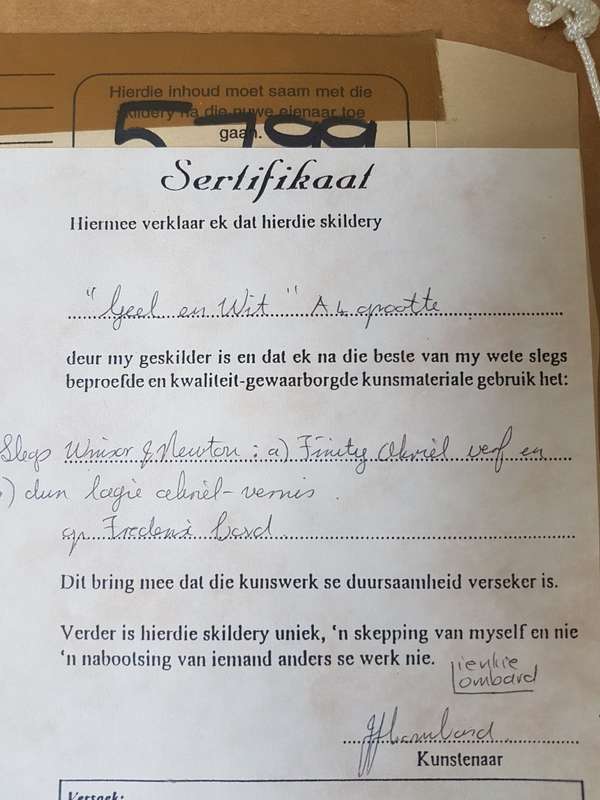 Hierdie inhoud moet saam met die
skildery na die nuwe eienaar toe
gaan.
5 799
Sertifikaat
Hiermee verklaar ek dat hierdie skildery
"Geel en Wit" A4 grootte
deur my geskilder is en dat ek na die beste van my wete slegs
beproefde en kwaliteit-gewaarborgde kunsmateriale gebruik het:
Slegs Winsor & Newton: a) Finity Akriel verf en
) dun lagie akriel-vernis.
op Fredenx bord
Dit bring mee dat die kunswerk se duursaamheid verseker is.
Verder is hierdie skildery uniek, 'n skepping van myself en nie
'n nabootsing van iemand anders se werk nie.
Lienkie
Lombard
Kunstenaar
Versoek: